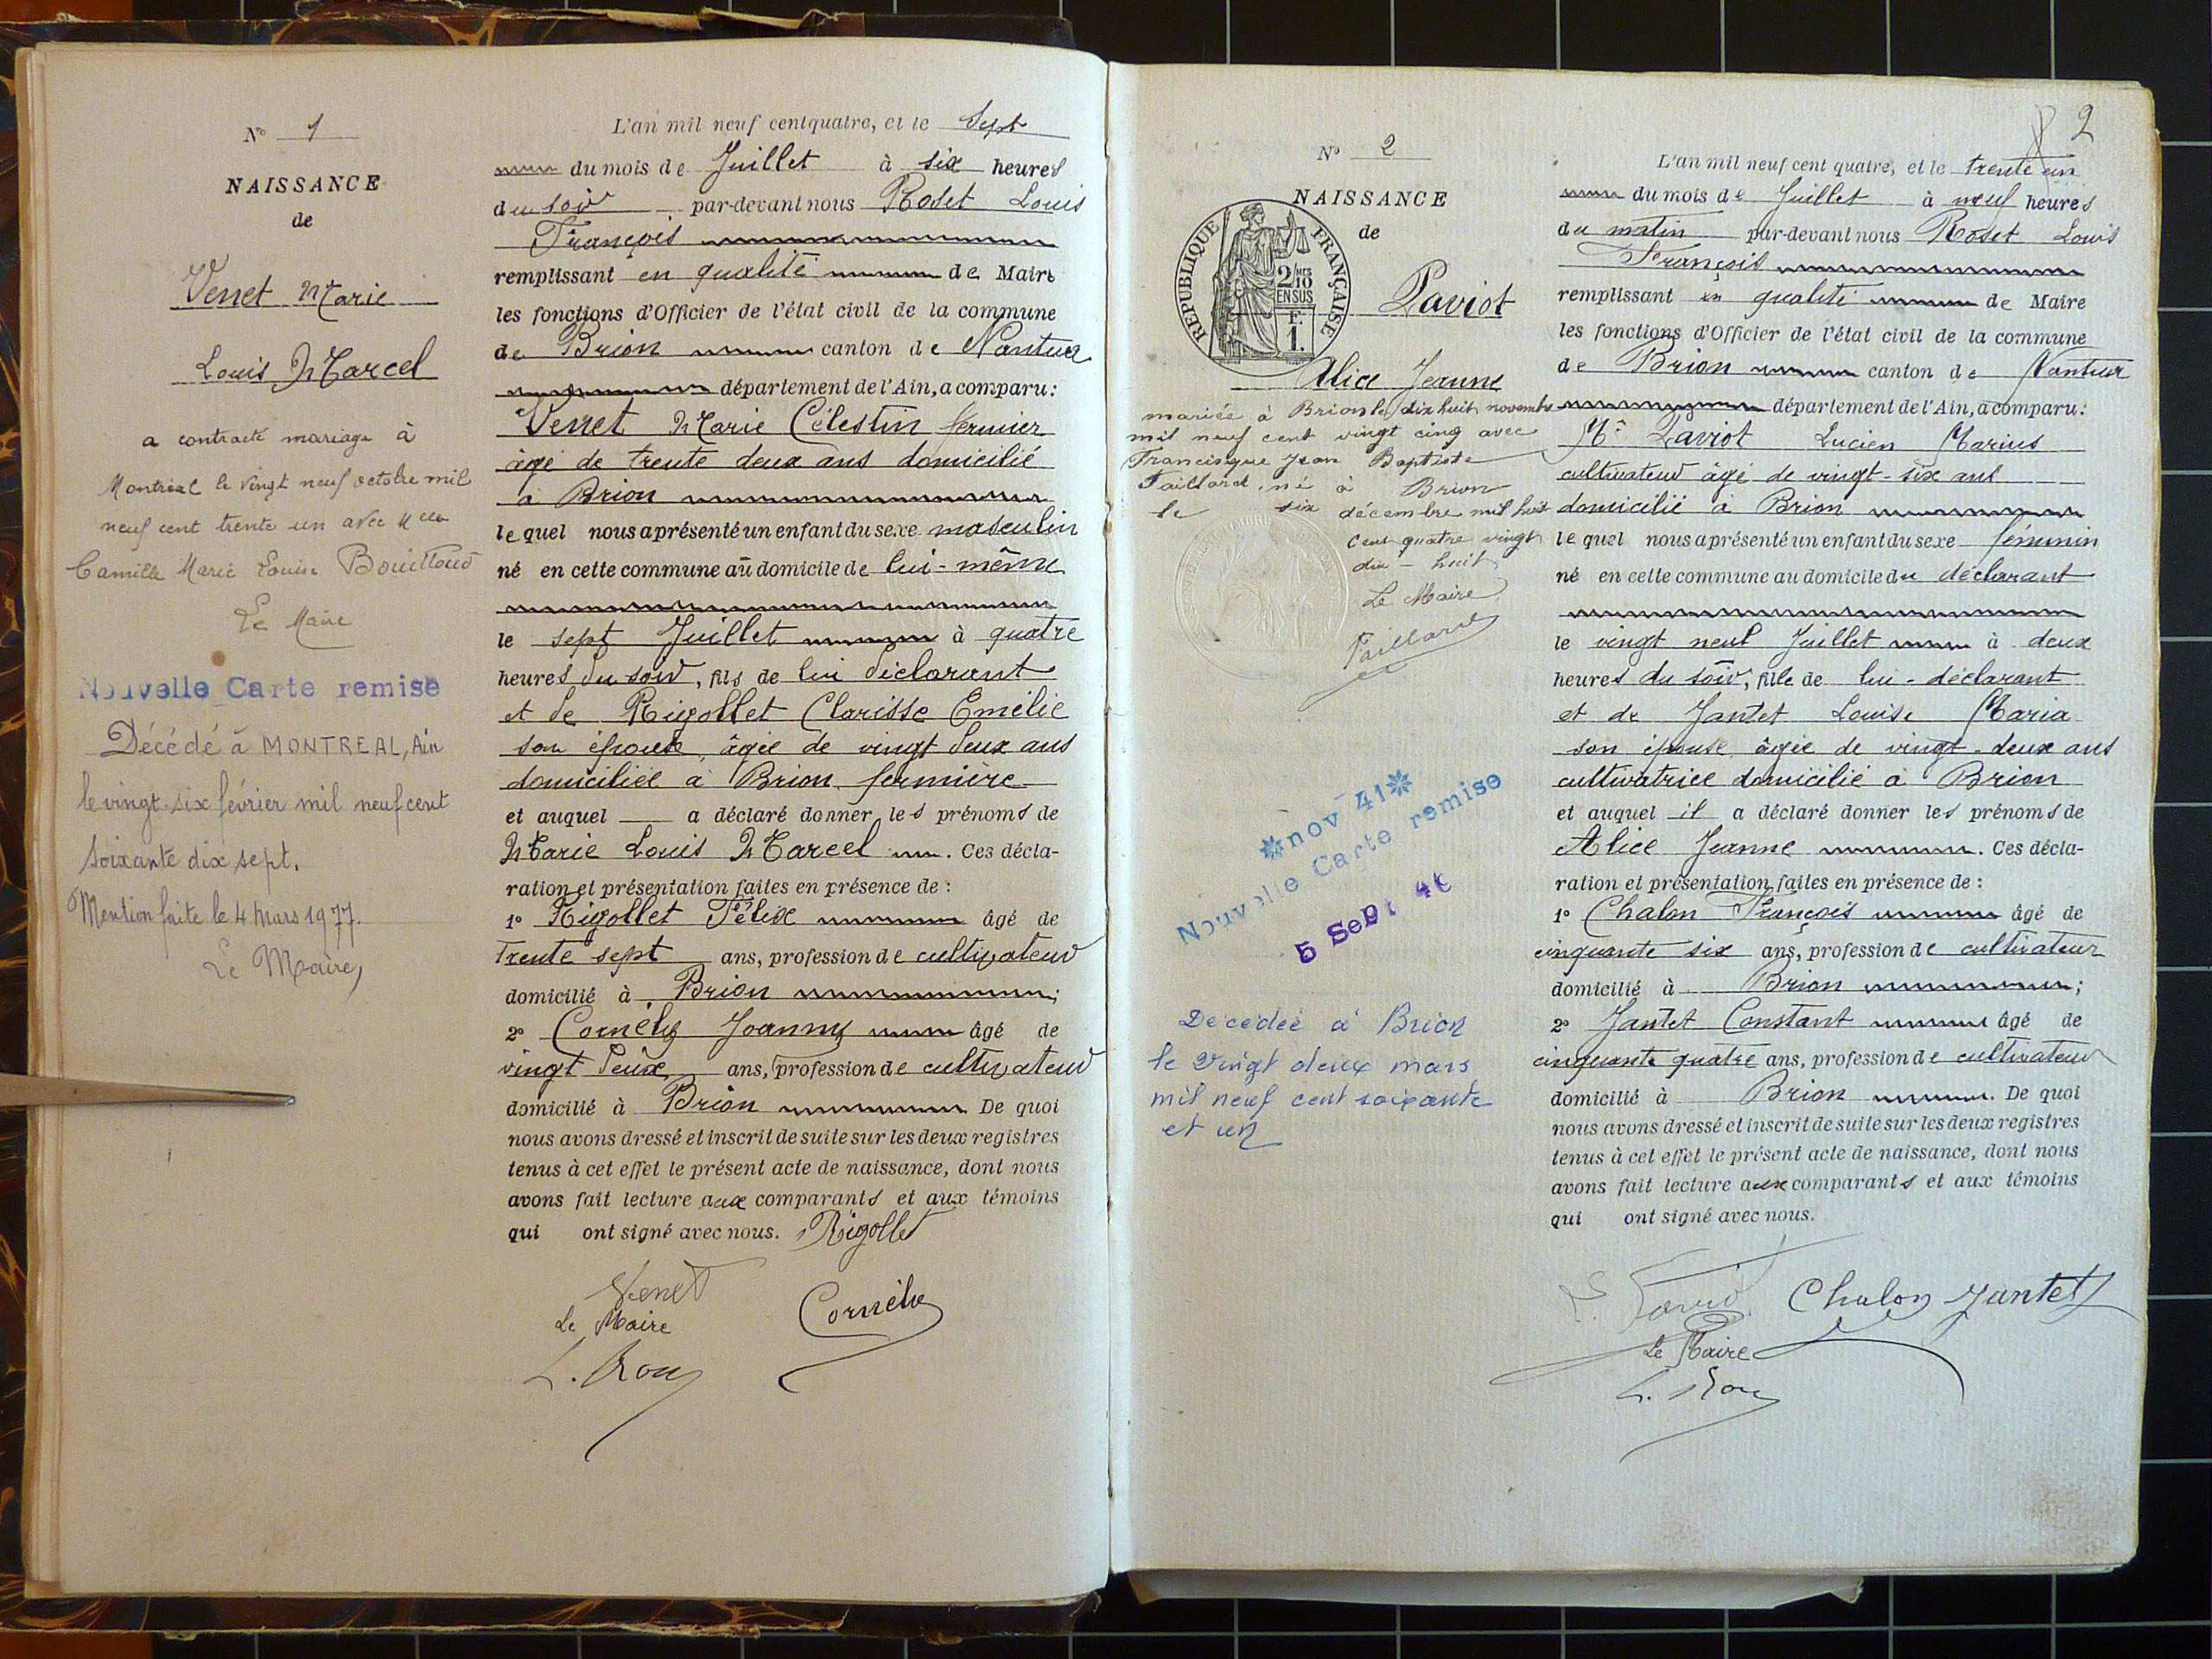 N° 1
NAISSANCE
de
Venet Marie
Louis Marcel
a contracté mariage à
Montréal le vingt neuf octobre mil
neuf cent trente un avec Melle
Camille Marie Louise Bouilloud
Le Maire
Nouvelle Carte remise
Décédé à MONTREAL, Ain
le vingt-six février mil neuf cent
soixante dix sept.
Mention faite le 4 Mars 1977.
Le Maire,
L'an mil neuf cent quatre, et le Sept
du mois de Juillet à six heures
du soir par-devant nous Roset Louis
François
remplissant en qualité de Maire
les fonctions d'Officier de l'état civil de la commune
de Brion canton de Nantua
département de l'Ain, a comparu:
Venet Marie Célestin fermier
âgé de trente deux ans domicilié
à Brion
lequel nous a présenté un enfant du sexe masculin
né en cette commune au domicile de lui-même
le sept Juillet à quatre
heures du soir, fils de lui déclarant
et de Rigollet Clarisse Emélie
son épouse, âgée de vingt deux ans
domiciliée à Brion fermière
et auquel a déclaré donner les prénoms de
Marie Louis Marcel. Ces décla-
ration et présentation faites en présence de :
1° Rigollet Félix âgé de
trente sept ans, profession de cultivateur
domicilié à Brion ;
2° Cornély Joanny âgé de
vingt deux ans, profession de cultivateur
domicilié à Brion De quoi
nous avons dressé et inscrit de suite sur les deux registres
tenus à cet effet le présent acte de naissance, dont nous
avons fait lecture aux comparants et aux témoins
qui ont signé avec nous. Rigollet
Venet
Le Maire
Cornély
2
N° 2
NAISSANCE
de
RÉPUBLIQUE FRANÇAISE
2/10
EN SUS
F.
1.
Paviot
Alice Jeanne
mariée à Brion le dix huit novembre
mil neuf cent vingt cinq avec
Francisque Jean Baptiste
Taillard, né à Brion
le six décembre mil huit
cent quatre vingt
dix-huit
Le Maire
Taillard
nov 41
Nouvelle Carte remise
5 Sept 46
Décédée à Brion
le vingt deux mars
mil neuf cent soixante
et un
L'an mil neuf cent quatre, et le trente un
du mois de Juillet à neuf heures
du matin par-devant nous Roset Louis
François
remplissant en qualité de Maire
les fonctions d'Officier de l'état civil de la commune
de Brion canton de Nantua
département de l'Ain, a comparu:
Mr Paviot Lucien Marius
cultivateur âgé de vingt-six ans
domicilié à Brion
lequel nous a présenté un enfant du sexe féminin
né en cette commune au domicile du déclarant
le vingt neuf Juillet à deux
heures du soir, fille de lui-déclarant
et de Jantet Louise Maria
son épouse âgée de vingt-deux ans
cultivatrice domicilié à Brion
et auquel il a déclaré donner les prénoms de
Alice Jeanne. Ces décla-
ration et présentation faites en présence de :
1° Chalon François âgé de
cinquante six ans, profession de cultivateur
domicilié à Brion ;
2° Jantet Constant âgé de
cinquante quatre ans, profession de cultivateur
domicilié à Brion. De quoi
nous avons dressé et inscrit de suite sur les deux registres
tenus à cet effet le présent acte de naissance, dont nous
avons fait lecture aux comparants et aux témoins
qui ont signé avec nous.
Chalon Jantet
Le Maire